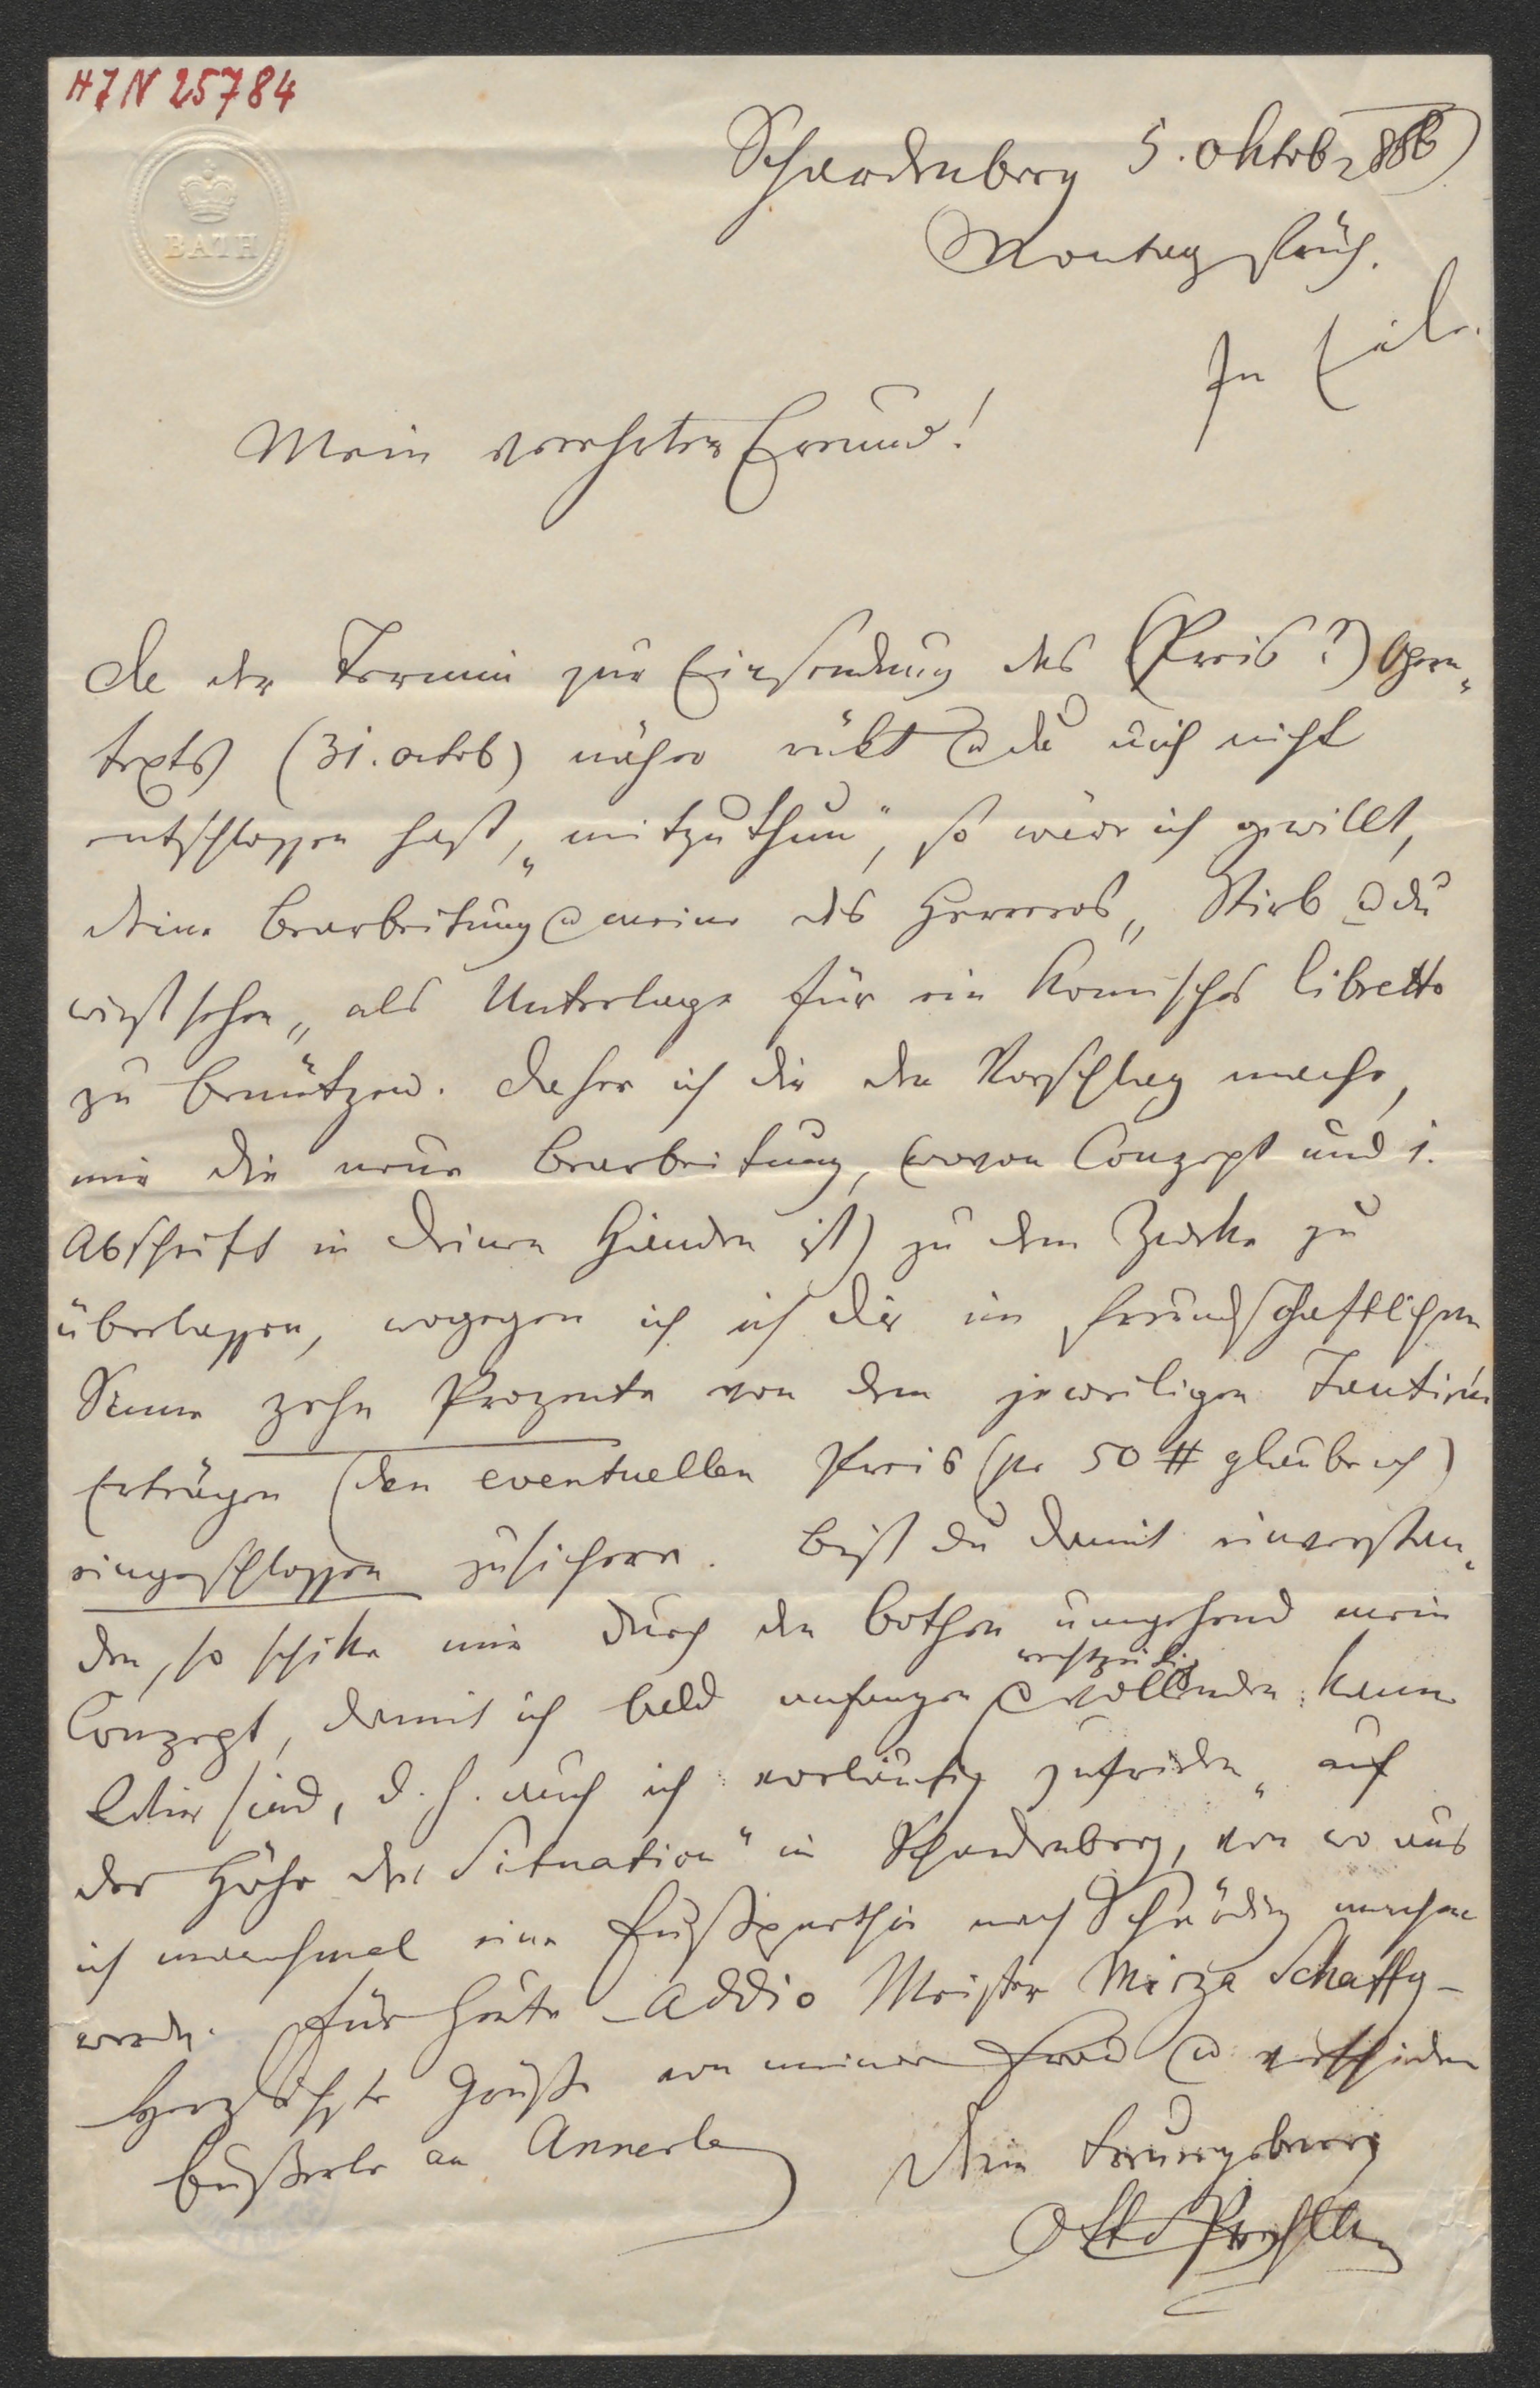 H I N 25784
BATH
Schardenberg 5. Oktob 868
Montag früh.
In Eile.
Mein verehrter Freund!
Da der Termin zur Einsendung des (Preis?) Opern-
texts (31. Octob) näher rükt & du dich nicht
entschlossen hast, „mitzuthun", so wäre ich gewillt,
deine Bearbeitung & meine des Herreros „Stirb & du
wirst sehen" als Unterlage für ein komisches Libretto
zu benützen. Daher ich dir den Vorschlag mache,
mir die neue Bearbeitung, (wovon Conzept und 1.
Abschrift in deinen Händen ist) zu dem Zwecke zu
überlassen, wogegen ich ich dir im freundschaftlichen
Sinne zehn Prozente von dem jeweiligen Tantième
Erträgen (den eventuellen Preis (pr 50 # glaube ich)
eingeschlossen zusichere. Bist du damit einverstan-
den, so schike mir durch den Bothen umgehend mein
Conzept, damit ich bald anfangen & rechtzeitig vollenden kann
Wir sind, d. h. auch ich vorläufig zufrieden „auf
der Höhe der Situation" in Schardenberg, von wo aus
ich manchmal eine Fußparthie nach Schärding machen
werde. Für heute – Addio Meister Mirza Schaffy –
Herzlichste Grüße von meiner Frau & verschiedene
Bußerle an Annerle
Dein treuergebener
Otto Prechtler